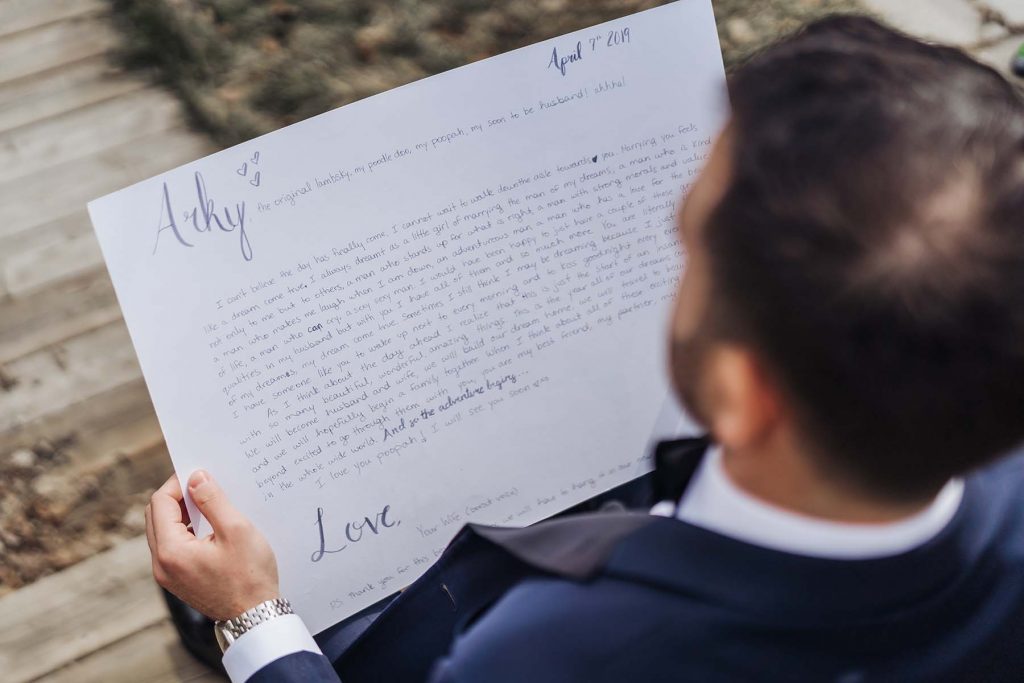 April 7th 2019
Arky, the original lambsky, my poodle doo, my poopah, my soon to be husband! ahhha!
I can't believe the day has finally come, I cannot wait to walk down the aisle towards you. Marrying you feels
like a dream come true, I always dreamt as a little girl of marrying the man of my dreams, a man who is kind
not only to me but to others, a man who stands up for what is right, a man with strong morals and value
a man who makes me laugh when I am down, an adventurous man, a man who has a love for the
of life, a man who can cry, a sexy sexy man. I would have been happy to just have a couple of these
qualities in my husband but with you I have all of them and so much more. You are literally
of my dreams, my dream come true. Sometimes I still think I may be dreaming because I just
I have someone like you to wake up next to every morning and to kiss goodnight every
As I think about the day ahead I realize that this is just the start of an
with so many beautiful, wonderful, amazing things. This is the year all of our dreams
We will become husband and wife, we will build our dream home, we will travel to
and we will hopefully begin a family together. When I think about all of these exciting
beyond excited to go through them with you, you are my best friend, my partner, my
in the whole wide world. And so the adventure begins...
I love you poopah, I will see you soon
Love,
Your Wife
PS thank you for this we will have to hang it in our